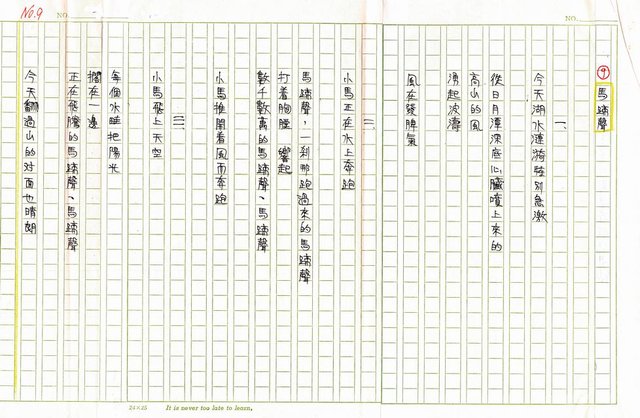 NO.
⑨ 馬蹄聲
一、
今天湖水漣漪特別急激
從日月潭深底心臟噴上來的
高山的風
湧起波濤
風在發脾氣
二、
小馬正在水上奔跑
馬蹄聲，一剎那跑過來的馬蹄聲
打着胸膛 響起
數千數萬的馬蹄聲、馬蹄聲
小馬推開着風而奔跑
三、
小馬飛上天空
每個水睡把陽光
擱在一邊
正在飛騰的馬蹄聲、馬蹄聲
今天翻過山的对面也晴朗
No.9
NO.
24×25 It is never too late to learn.